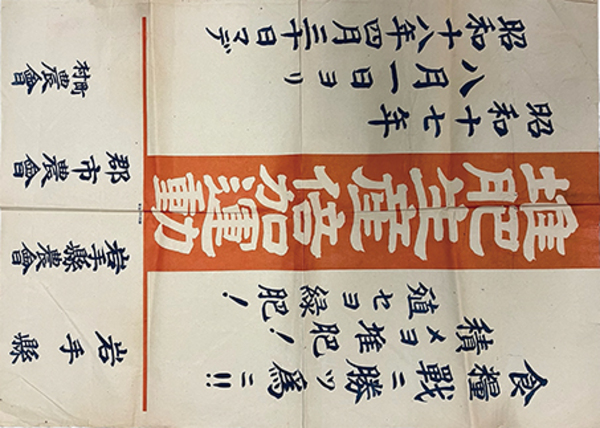 食糧戰ニ勝ツ為ニ!!
積メヨ堆肥!
殖セヨ緑肥!
堆肥生産倍加運動
昭和十七年
八月一日ヨリ
昭和十八年四月三十日マデ
岩手縣
岩手縣農會
郡市農會
町村農會